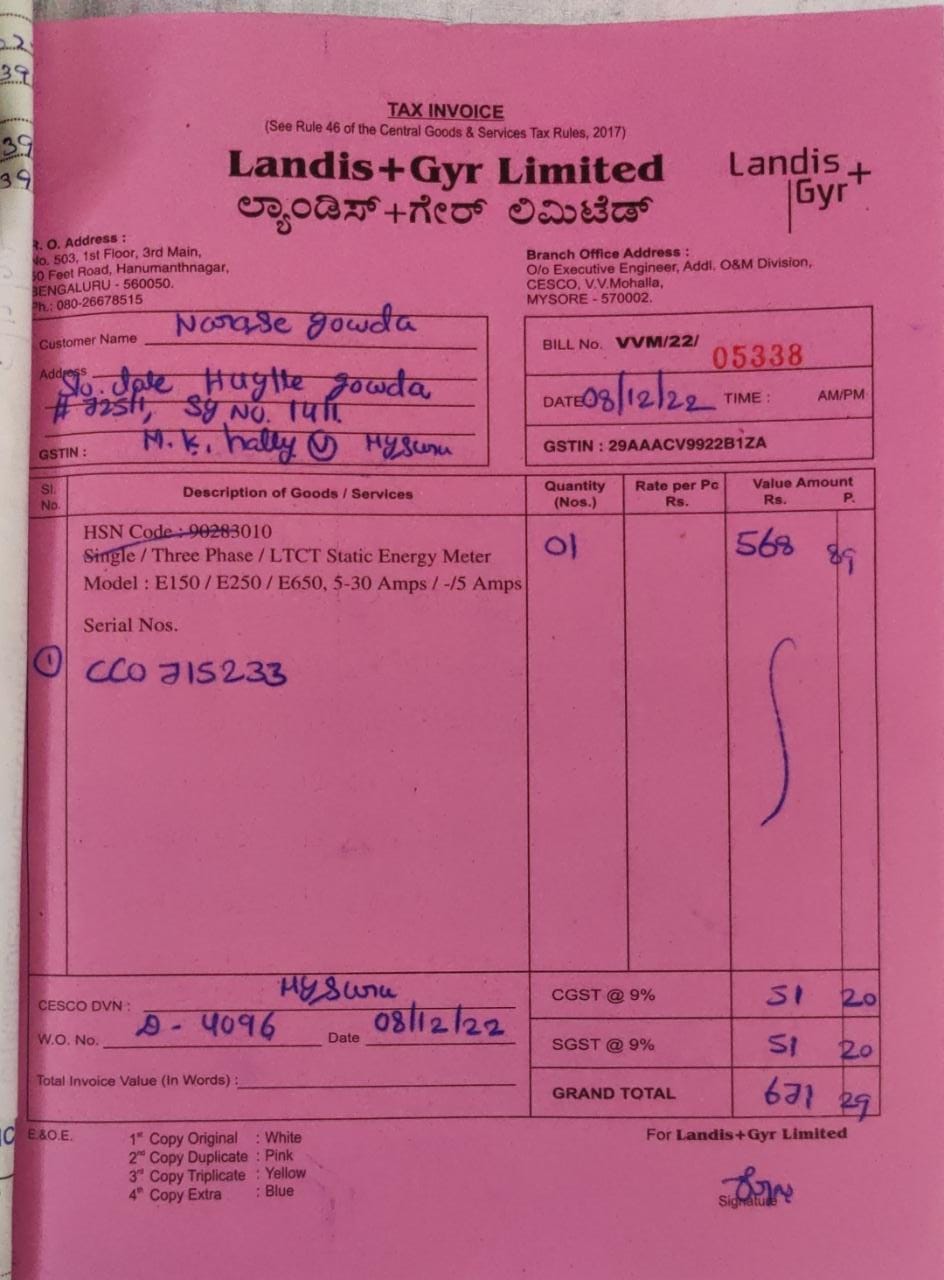 22
39
39
39
TAX INVOICE
(See Rule 46 of the Central Goods & Services Tax Rules, 2017)
Landis+Gyr Limited
ಲ್ಯಾಂಡಿಸ್+ಗೇರ್ ಲಿಮಿಟೆಡ್
Landis+
Gyr
R. O. Address :
No. 503, 1st Floor, 3rd Main,
50 Feet Road, Hanumanthnagar,
BENGALURU - 560050.
Ph.: 080-26678515
Branch Office Address :
O/o Executive Engineer, Addl. O&M Division,
CESCO, V.V.Mohalla,
MYSORE - 570002.
Customer Name Narase gowda
Address
S/o. late gowda
Sy No. 1411
GSTIN : M. K. hally (V) Mysuru
BILL No. VVM/22/ 05338
DATE 08/12/22 TIME : AM/PM
GSTIN : 29AAACV9922B1ZA
Sl. No. Description of Goods / Services Quantity (Nos.) Rate per Pc Rs. Value Amount Rs. P.
HSN Code : 90283010
Single / Three Phase / LTCT Static Energy Meter 01 568 89
Model : E150 / E250 / E650, 5-30 Amps / -/5 Amps
Serial Nos.
1 CCO 715233
CESCO DVN : Mysuru
W.O. No. D - 4096 Date 08/12/22
Total Invoice Value (In Words) :
CGST @ 9% 51 20
SGST @ 9% 51 20
GRAND TOTAL 671 29
E.&O.E.
1st Copy Original : White
2nd Copy Duplicate : Pink
3rd Copy Triplicate : Yellow
4th Copy Extra : Blue
For Landis+Gyr Limited
Signature